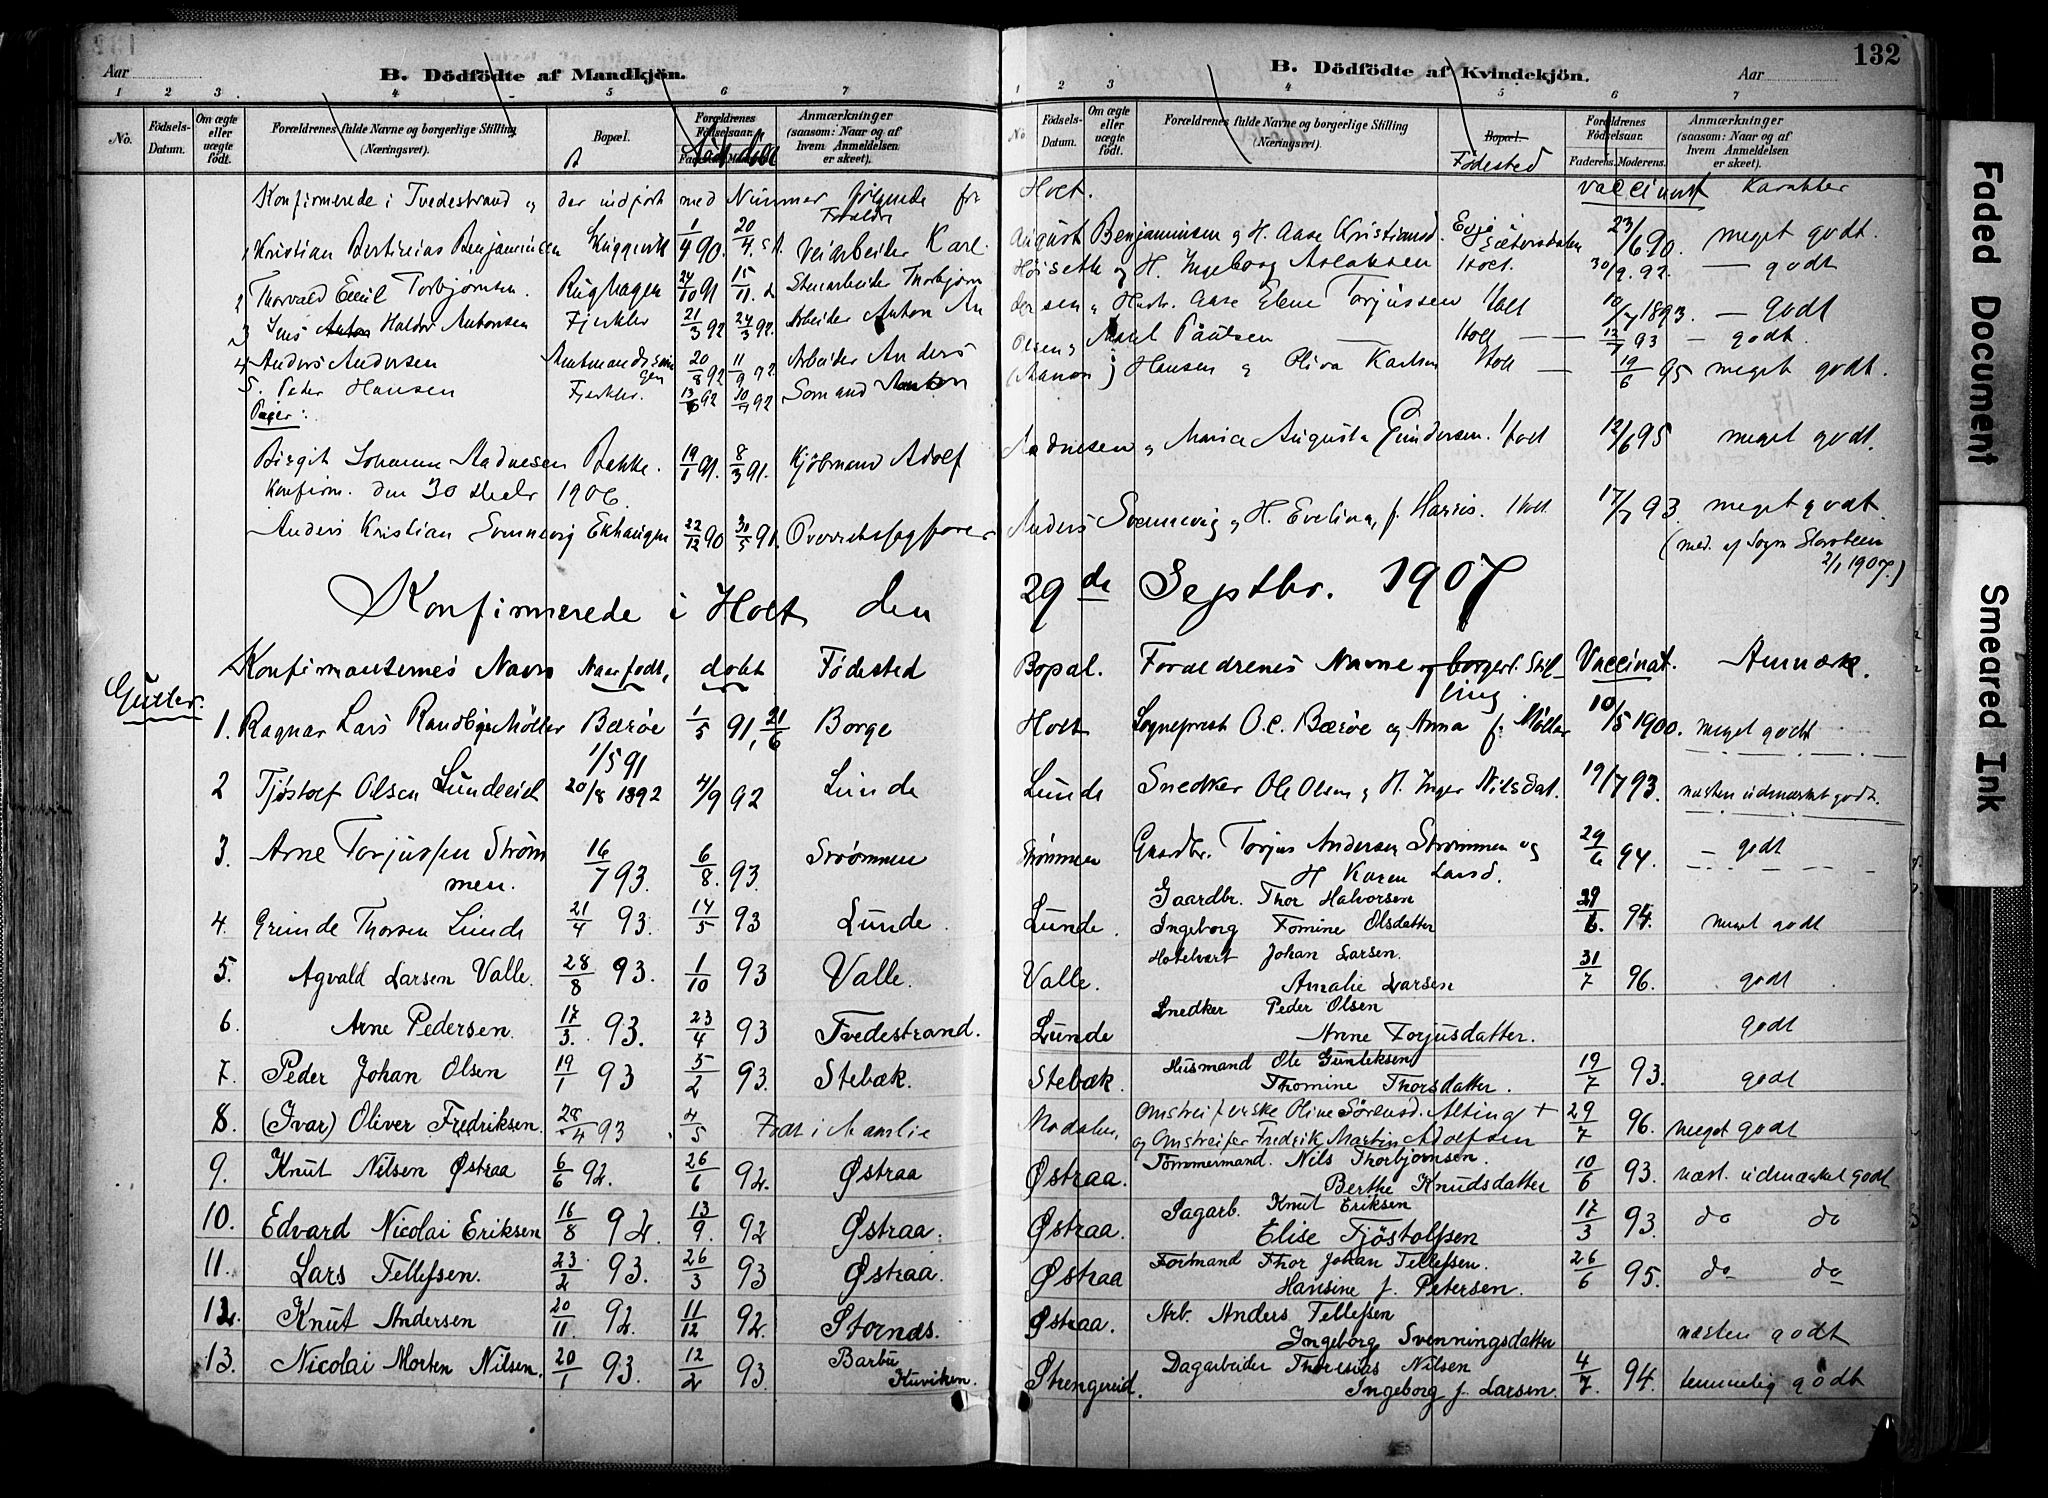 132
Aar
B. Dödfödte af Mandkjön.
B. Dödfödte af Kvindekjön.
Aar
1 2 3 4 5 6 7
1 2 3 4 5 6 7
No. Födsels-Datum. Om ægte eller uægte födt. Forældrenes fulde Navne og borgerlige Stilling (Næringsvei). Bopæl. Forældrenes Födselsaar. Anmærkninger (saasom: Naar og af hvem Anmeldelsen er skeet).
No. Födsels-Datum. Om ægte eller uægte födt. Forældrenes fulde Navne og borgerlige Stilling (Næringsvei). Bopæl. Födested Forældrenes Födselsaar. Faderens. Moderens. Anmærkninger (saasom: Naar og af hvem Anmeldelsen er skeet).
Konfirmerede i Tvedestrand og der indført med Nummer følgende fra Holt. vaccineret Karakter
Forældre
1 Kristian Bertinius Benjaminsen 1/4 90. 20/4 Veiarbeider Karl August Benjaminsen og H. Aase Kristiansd. Evje Sætersdalen 23/6 90. meget godt.
2 Thorvald Emil Torbjørnsen. Rughagen 24/10 91 15/11 Stenarbeider Thorbjørn og H. Ingeborg Aslaksen Holt. 30/9. 92. — godt
3 Jens Haldor Antonsen Fjerkler 21/3 92 24/3 92. Arbeider Anton Andersen og Hustr. Aase Elene Torjussen Holt 10/7 1893. — godt
4 Anders Andersen 20/8 92 11/9 92. Arbeider Anders Olsen og Holt — 12/7 93 — godt.
5. Peder Hansen Fjerkler. 13/6 92 10/7 92 Sømand Hansen og Oliva Karlsen Holt — 19/6 95 meget godt.
Piger:
Birgit Johanne Aadnesen Bakke. 19/1 91. 8/3 91. Kjøbmand Adolf Aadnesen og Maria Augusta Gundersen. Holt 12/6 95 meget godt.
Konfirm. den 30 1906
Anders Kristian Sømnevig Ekhaugen 22/12 90 30/5 91. Overretssagfører Anders og H. Evelina, f. Harris. Holt 17/7 93. meget godt.
(med. af Sogn 2/1 1907.)
Konfirmerede i Holt den 29de Septbr. 1907
Konfirmanternes Navn Naar født, døbt Fødested Bopæl. Forældrenes Navne og borgerl. Stilling. Vaccinat. Anmærk.
Gutter.
1. Ragnar Lars Randby Møller Bærøe 1/5 91, 21/6 Borge Holt Sogneprest O.C. Bærøe og Anna f. Møller 10/5 1900. meget godt
1/5 91
2 Tjøstolf Olsen Lundeeiet 20/8 1892 4/9 92 Lunde Lunde Snedker Ole Olsen og H. Inger Nilsdat. 19/7 93. næsten udmærket godt.
3. Arne Torjussen Strømmen. 16/7 93. 6/8. 93. Strømmen Strømmen Gaardbr. Torjus Andersen Strømmen og H Karen Larsd. 29/6 94. — godt
4. Grunde Thorsen Lunde 21/4 93. 14/5 93 Lunde. Lunde. Gaardbr. Thor Halvorsen Ingeborg Tomine Olsdatter 29/6. 94. meget godt
5. Agvald Larsen Valle. 28/8 93. 1/10 93 Valle. Valle. Hotelvært Johan Larsen. Amalie Larsen 31/7 96. godt
6. Arne Pedersen. 17/3. 93. 23/4 93 Tvedestrand. Lunde Snedker Peder Olsen Anne Torjusdatter. godt
7. Peder Johan Olsen 19/1 93 5/2 93. Stebæk. Stebæk. Husmand Ole Gunleksen Thomine Thorsdatter. 19/7 93. godt
8. (Ivar) Oliver Fredriksen. 28/4 93 4/5 Født i Aamlie Modalen, Omstreiferske Oline Sørensd. Alting + og Omstreifer Fredrik Martin Adolfsen 29/7 96. meget godt
9. Knut Nilsen Østraa 6/6 92. 26/6 92. Østraa Østraa. Tømmermand. Nils Thorbjørnsen. Berthe Knudsdatter 10/6 93. næst. udmærket godt
10. Edvard Nicolai Eriksen 16/8 92. 13/9. 92 Østraa. Østraa. Sagarb. Knut Eriksen Elise Tjøstolfsen 17/3 93. do do
11. Lars Tellefsen. 23/2 93. 26/3 93 Østraa. Østraa Formand Thor Johan Tellefsen. Hansine f. Petersen. 26/6 95. do do
12. Knut Andersen 20/11. 92. 11/12 92. Stornes. Østraa. Arb. Anders Tellefsen Ingeborg Svenningsdatter næsten godt
13. Nicolai Morten Nilsen. 20/1 93. 12/2 93. Barbu Kuviken. Strengereid. Dagarbeider Thoresias Nilsen Ingeborg f. Larsen. 4/7. 94. temmelig godt
Faded Document
Smeared Ink